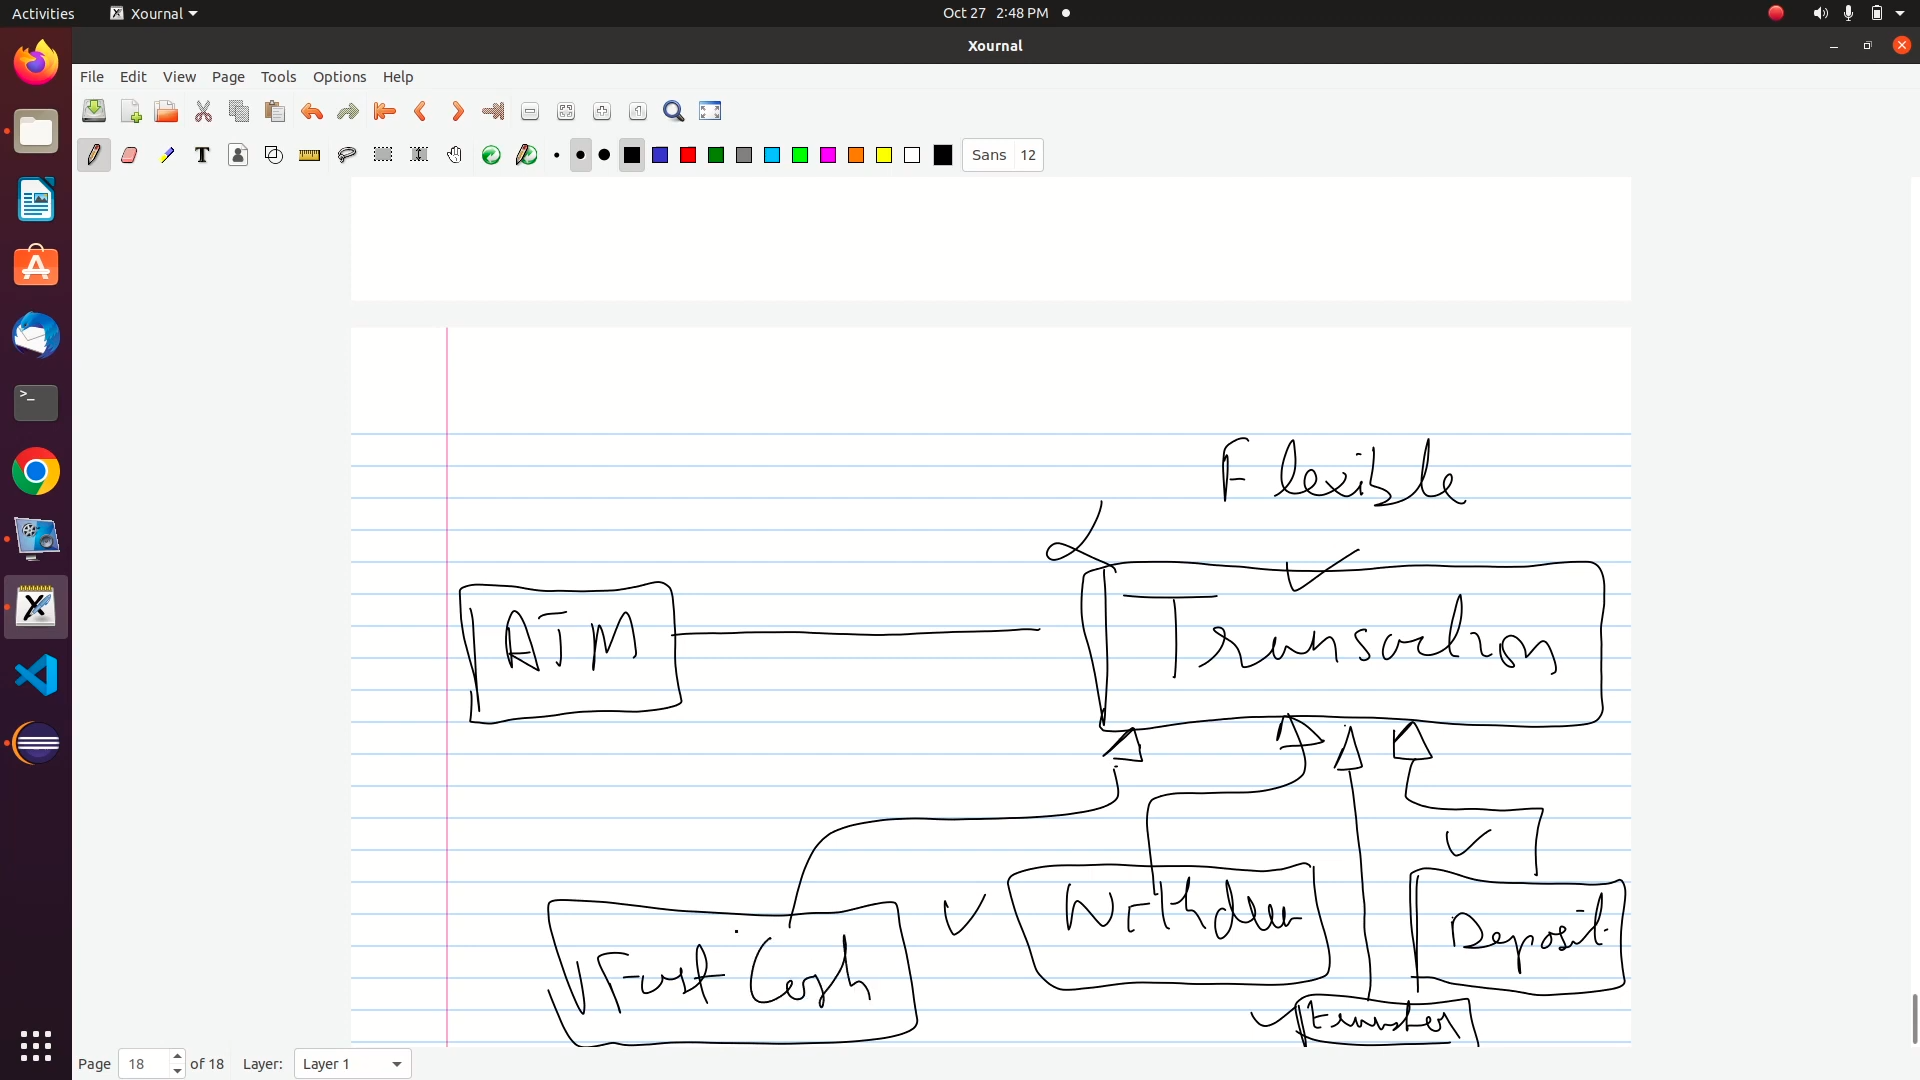 Activities Xournal Oct 27 2:48 PM
Xournal
File Edit View Page Tools Options Help
T Sans 12
Flexible
ATM Transaction
Fast Cash Withdraw Deposit
transfer
Page 18 of 18 Layer: Layer 1